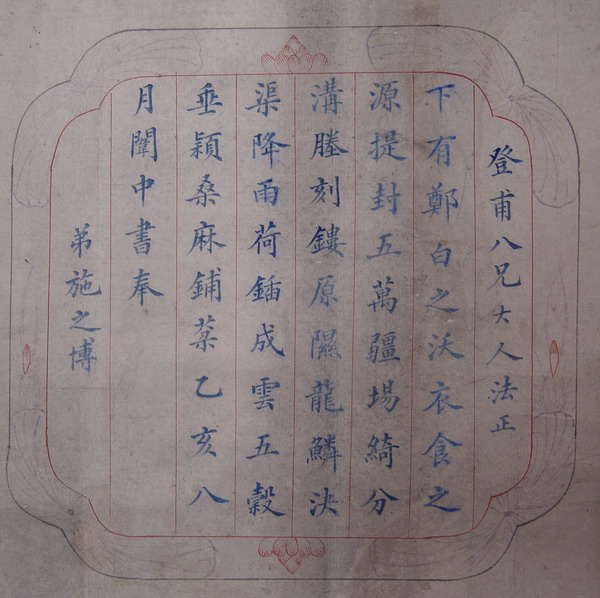 登甫八兄大人法正
下有鄭白之沃衣食之
源提封五萬疆場綺分
溝塍刻鏤原隰龍鱗決
渠降雨荷鍤成雲五穀
垂穎桑麻鋪棻乙亥八
月闈中書奉
弟施之博